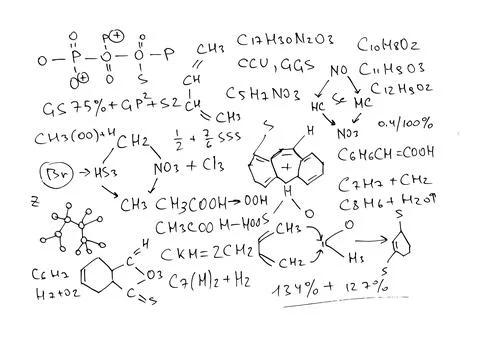 O P+ O
O-P-O-O-P
O+ O S
CH3
CH
CH
CH3
C17H30N2O3
CCU, GGS
C5H7NO3
C10H8O2
NO C11H8O3
HC Se MC C12H8O2
NO3
0.4/100%
GS 75% + GP2 + S2
CH3(OO)+H CH2
1/2 + 7/6 SSS
Br → HS3
NO3 + Cl3
CH3 CH3COOH → OOH
S H
+
H
S O
C6H6CH=COOH
C7H7 + CH2
C8H6 + H2O↑
Z
CH3COO H-HOOS
CKH=2CH2
C7(H)2 + H2
CH3
CH2
O
H3
S
S
C6H7
H2+O2
C H
O3
C=S
134% + 127%